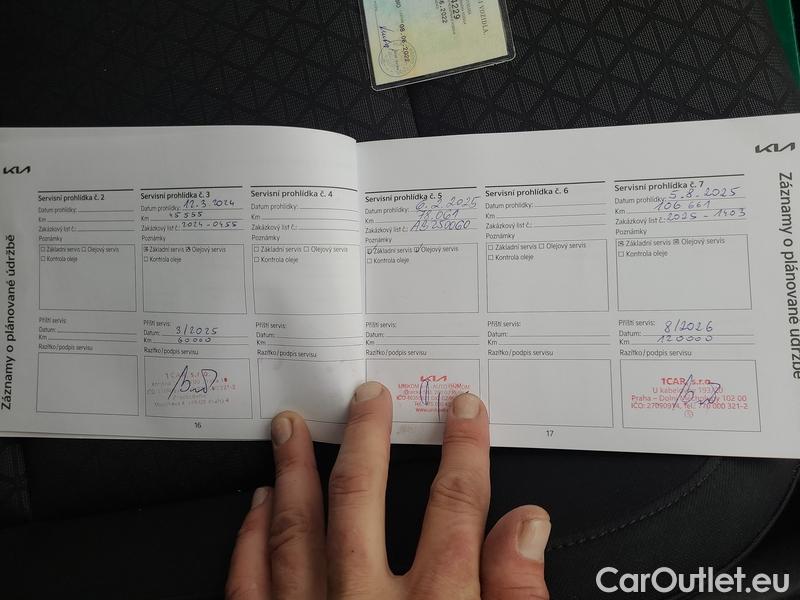 I VOZIDLA.
4229
6.2022
08.06.2022
KIA
Záznamy o plánované údržbě
Servisní prohlídka č. 2
Datum prohlídky:
Km
Zakázkový list č.:
Poznámky
☐ Základní servis ☐ Olejový servis
☐ Kontrola oleje
Příští servis:
Datum:
Km
Razítko/podpis servisu
Servisní prohlídka č. 3
Datum prohlídky: 12.3.2024
Km 45 555
Zakázkový list č.: 2024-0455
Poznámky
☒ Základní servis ☒ Olejový servis
☐ Kontrola oleje
Příští servis:
Datum: 3/2025
Km 60000
Razítko/podpis servisu
1CAR, s.r.o.
Servisní prohlídka č. 4
Datum prohlídky:
Km
Zakázkový list č.:
Poznámky
☐ Základní servis ☐ Olejový servis
☐ Kontrola oleje
Příští servis:
Datum:
Km
Razítko/podpis servisu
16
KIA
Záznamy o plánované údržbě
Servisní prohlídka č. 5
Datum prohlídky: 6.2.2025
Km
Zakázkový list č.: AB250060
Poznámky
☑ Základní servis ☑ Olejový servis
☐ Kontrola oleje
Příští servis:
Datum:
Km
Razítko/podpis servisu
KIA
Servisní prohlídka č. 6
Datum prohlídky:
Km
Zakázkový list č.:
Poznámky
☐ Základní servis ☐ Olejový servis
☐ Kontrola oleje
Příští servis:
Datum:
Km
Razítko/podpis servisu
Servisní prohlídka č. 7
Datum prohlídky: 5.8.2025
Km 106 661
Zakázkový list č.: 2025-1403
Poznámky
☒ Základní servis ☒ Olejový servis
☐ Kontrola oleje
Příští servis:
Datum: 8/2026
Km 120000
Razítko/podpis servisu
1CAR, s.r.o.
U kabelovny
Praha – Dolní 102 00
IČO: 27090914, tel.: 770 000 321-2
17
CarOutlet.eu